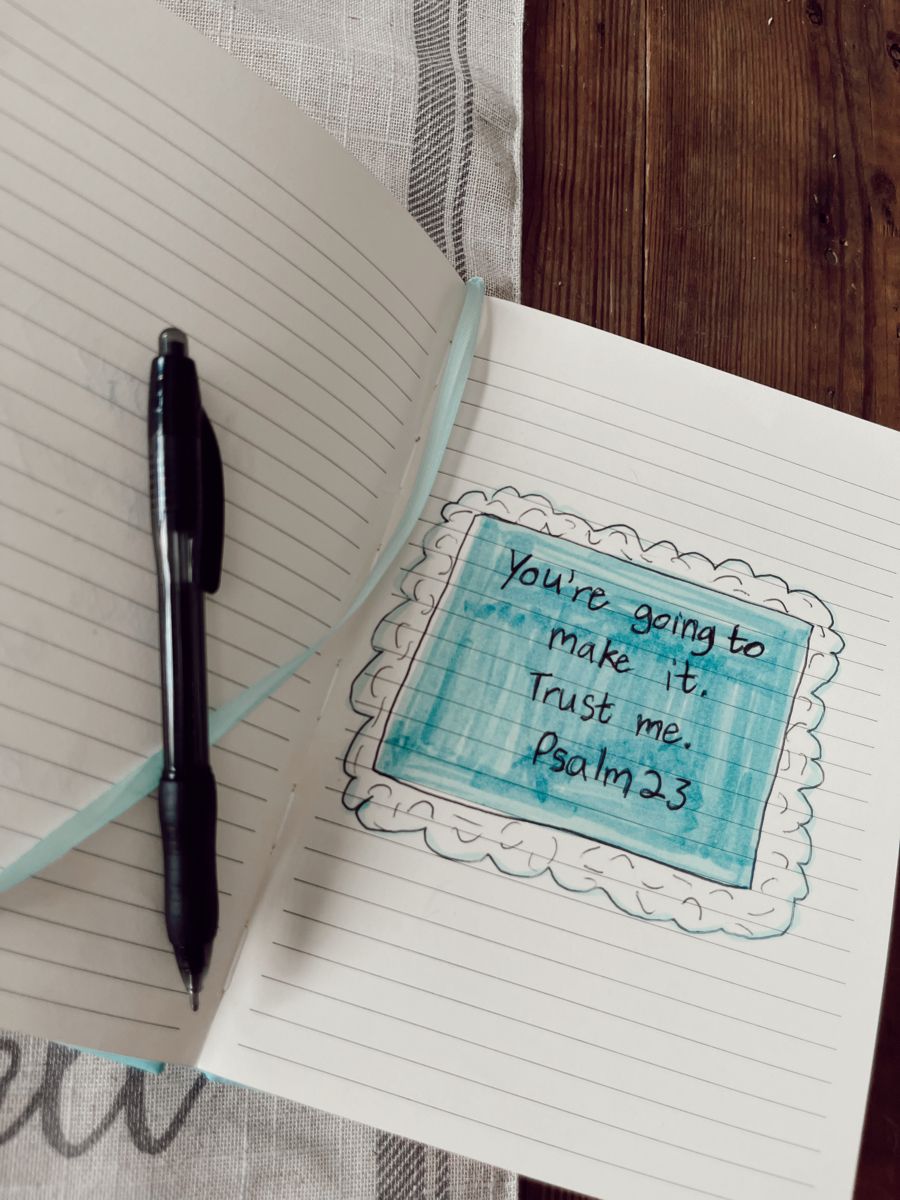 You're going to
make it.
Trust me.
Psalm 23